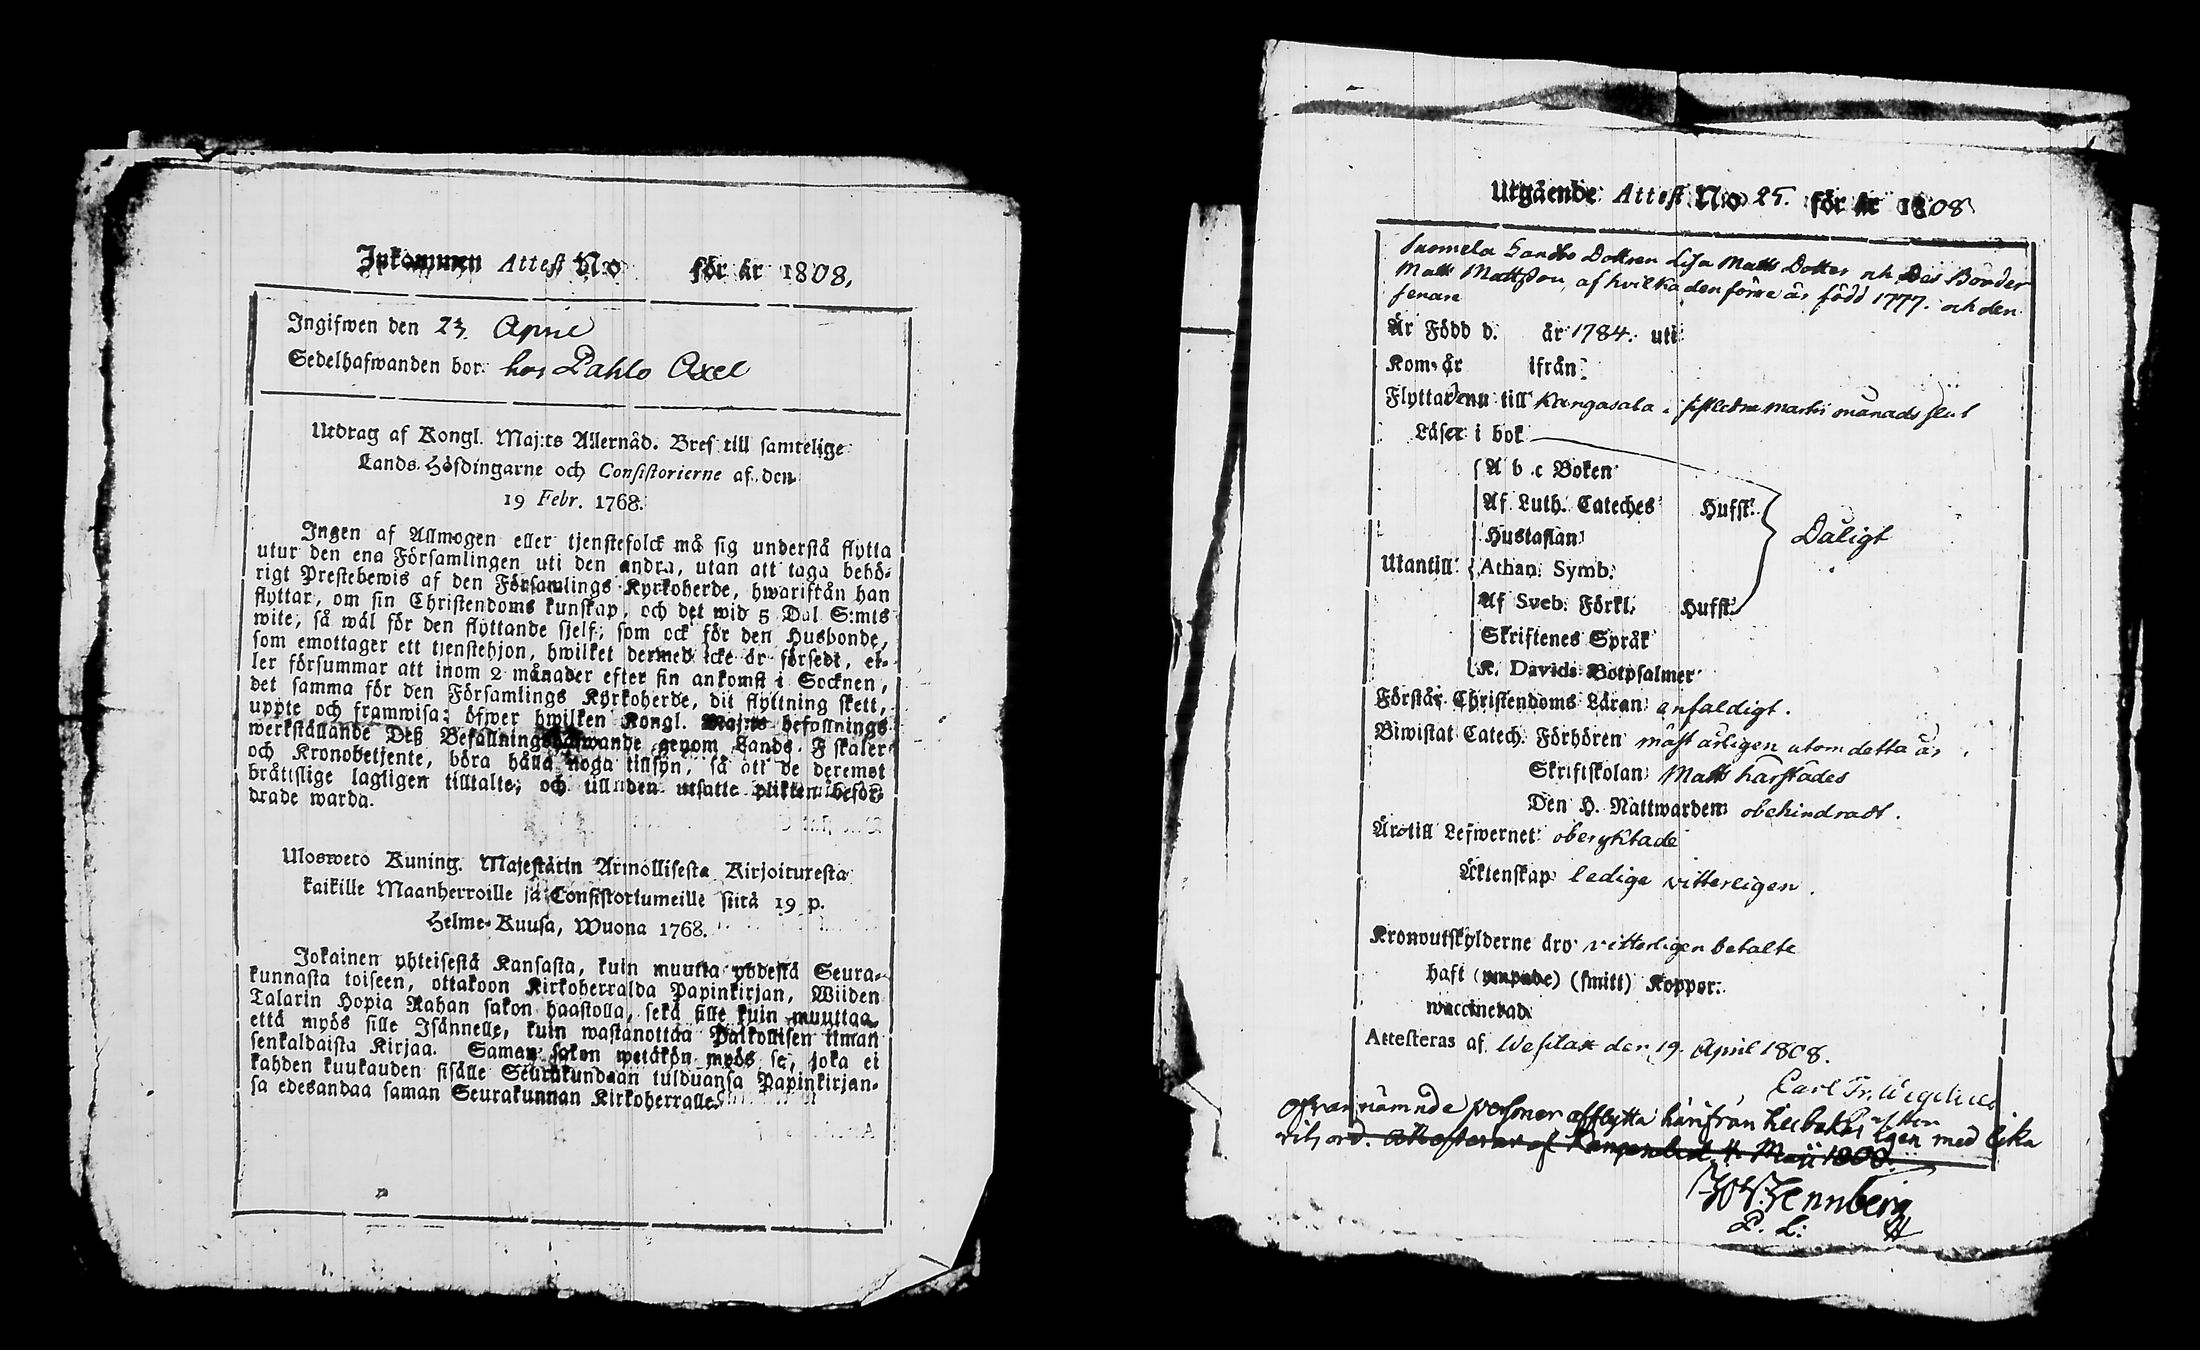 Inkommen Attest No för år 1808.
Ingifwen den 23. April
Sedelhafwanden bor hos Pahlo Axel
Utdrag af Kongl. Maj:ts Allernåd. Bref till samtelige
Lands-Höfdingarne och Consistorierne af den
19 Febr. 1768.
Ingen af Allmogen eller tjenstefolck må sig understå flytta
utur den ena Församlingen uti den andra, utan att taga behö-
rigt Prestebewis af den Församlings Kyrkoherde, hwarifrån han
flyttar, om sin Christendoms kunskap, och det wid 5 Dal S:mts
wite, så wäl för den flyttande sjelf, som ock för den Husbonde,
som emottager ett tjenstehjon, hwilket dermed icke är försedt, el-
ler försummar att inom 2 månader efter sin ankomst i Socknen,
det samma för den Församlings Kyrkoherde, dit flyttning skett,
uppte och framwisa; öfwer hwilken Kongl. Maj:ts befallnings
werkställande Deß Befallningshafwande genom Lands F skaler
och Kronobetjente, böra hålla noga tillsyn, så att de deremot
bråttslige lagligen tilltalte, och till den utsatte plikten befor-
drade warda.
Ulosweto Kuning. Majestätin Armollisesta Kirjoituxesta
kaikille Maanherroille ja Consistoriumeille siitä 19 p.
Helme-Kuusa, Wuona 1768.
Jokainen yhteisestä Kansasta, kuin muutta yhdestä Seura-
kunnasta toiseen, ottakoon Kirkoherralda Papinkirjan, Wiiden
Talarin Hopia Rahan sakon haastolla, sekä sille kuin muuttaa,
että myös sille Isännelle, kuin wastanottaa Palkollisen ilman
senkaldaista Kirjaa. Saman sakon wetäkön myös se, joka ei
kahden kuukauden sisälle Seurakundaan tulduansa Papinkirjan-
sa edesandaa saman Seurakunnan Kirkoherralle.
Utgående Attest No 25. för år 1808
Suomela Lands Dottren Lisa Matts Dotter och Des Broder
Matts Mattson, af hvilka den förre är född 1777. och den
senare
Är Född d. år 1784. uti
Kom år ifrån
Flyttar nu till Kangasala i sistledne martii månads slut
Läser i bok
A b c Boken
Af Luth. Cateches Hufst.
Hustaflan Dåligt
Utantill Athan. Symb.
Af Sveb. Förkl. Hufst.
Skriftenes Språk
K. Davids Botpsalmer
Förstår Christendoms Läran enfaldigt.
Biwistat Catech. Förhören mäst årligen utom detta år.
Skriftskolan Matts härstädes
Den H. Nattwarden obehindradt.
Är till Lefwernet oberyktade
Äktenskap ledige vitterligen.
Kronoutskylderne äro vitterligen betalte
haft (ympade) (smitt) Koppor.
waccinerad
Attesteras af Wesilax den 19. April 1808.
Carl Fr. Wegelius
Ofvannämnde personer afflytta härifrån tillbakas igen med lika
vitsord. Attesteras af Kangasala d. 4. Maii 1808.
P. L.